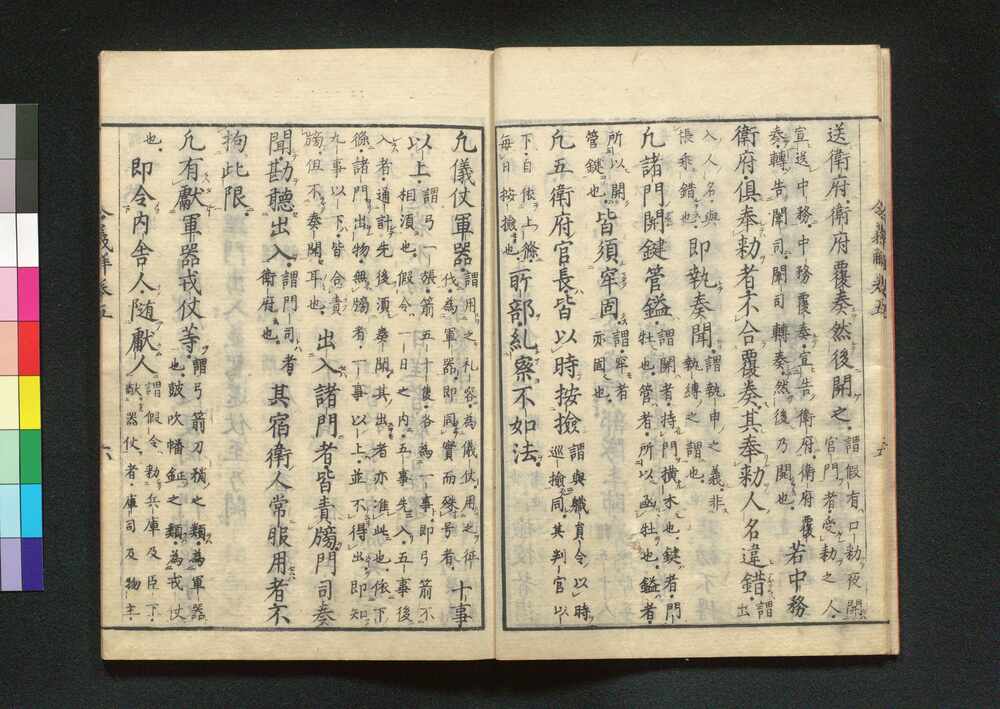 送衛府衛府覆奏然後開之謂假有口勅夜開
宮門者受勅之人
宣送中務中務覆奏宣告衛府衛府覆
奏轉告闈司闈司轉奏然後乃開也若中務
衛府倶奉勅者不合覆奏其奉勅人名違錯謂出
入人名與
帳乖錯也即執奏聞謂執申之義非
執縛之謂也
凡諸門關鍵管鎰謂關者持門橫木也鍵者門
牡也管者所以函牡也鎰者
所以開
管鍵也皆須牢固謂牢者
亦固也
凡五衛府官長皆以時按撿謂與軄員令以時
巡撿同其判官以
下自依上條
每日按撿也所部糺察不如法
凡儀仗軍器謂用之礼容為儀仗用之征
伐為軍器即同實而殊号者十事
以上謂弓一張箭五十隻各為一事即弓箭不
相須也假令一日之內五事先入五事後
入者通計先後須奏聞其出者亦准此也依下
條諸門出物無牓者一事以上並不得出即知
九事以下皆合責
牓但不奏聞耳也出入諸門者皆責牓門司奏
聞勘聽出入謂門司者
衛府也其宿衛人常服用者不
拘此限
凡有獻軍器戎仗等謂弓箭刀矟之類為軍器
也皷吹幡鉦之類為戎仗
也即令內舍人随獻人謂假令勅兵庫及臣下
獻器仗者庫司及物主